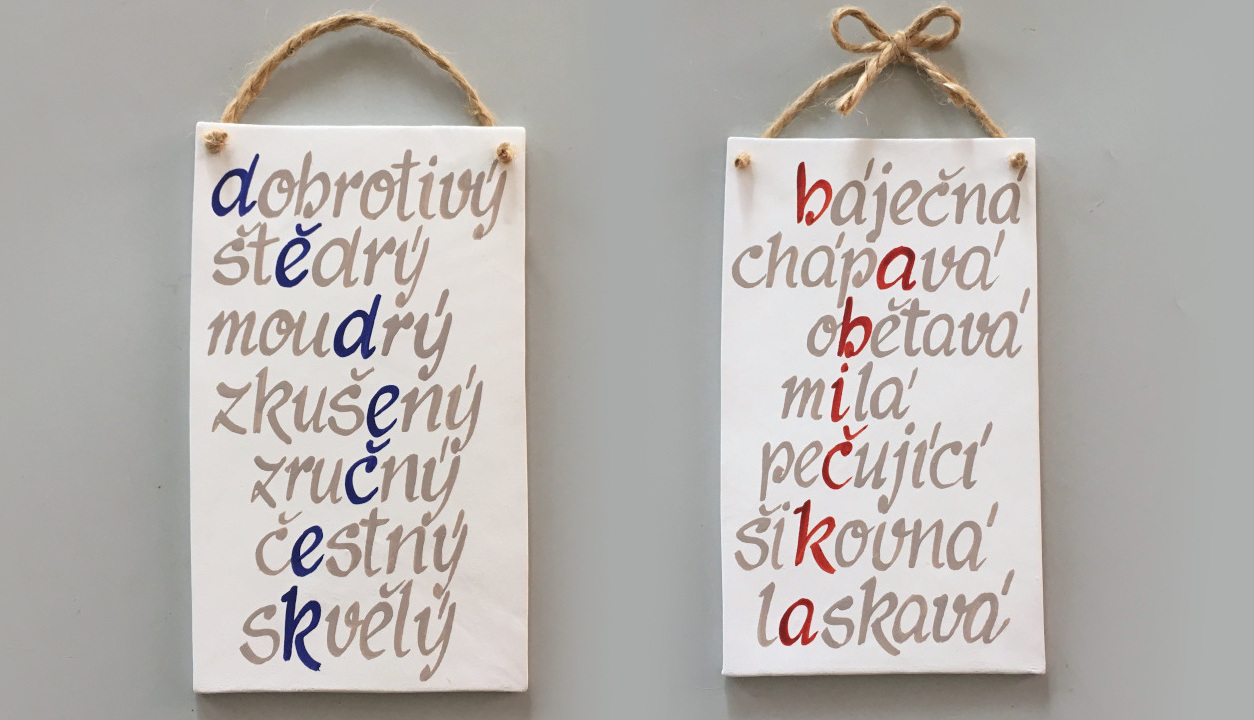 dobrotivý
štědrý
moudrý
zkušený
zručný
čestný
skvělý
báječná
chápavá
obětavá
milá
pečující
šikovná
laskavá